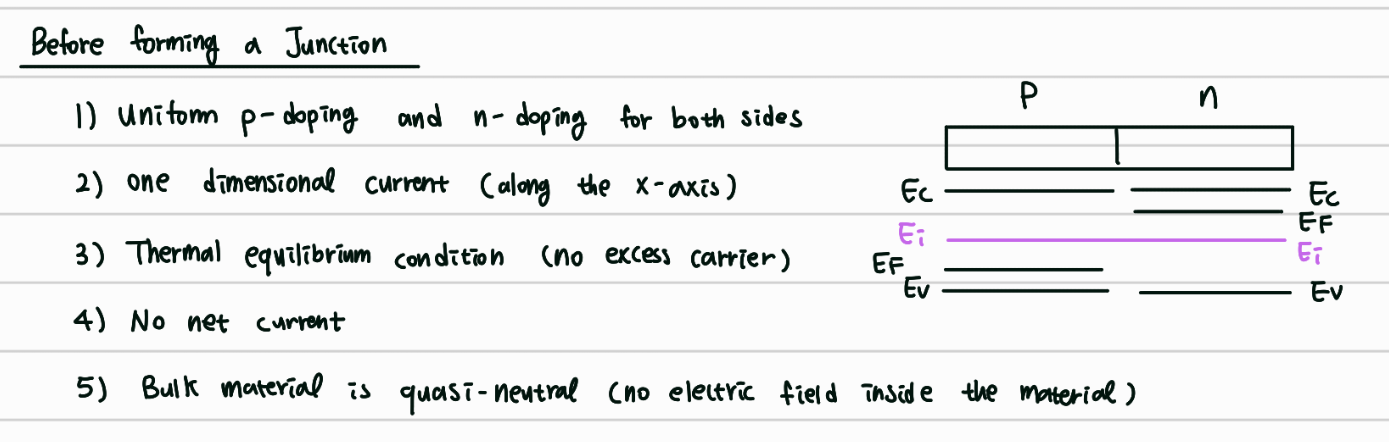 Before forming a Junction
1) Uniform p-doping and n-doping for both sides
2) one dimensional current (along the x-axis)
3) Thermal equilibrium condition (no excess carrier)
4) No net current
5) Bulk material is quasi-neutral (no electric field inside the material)
P n
Ec Ec
EF
Ei Ei
EF
Ev Ev